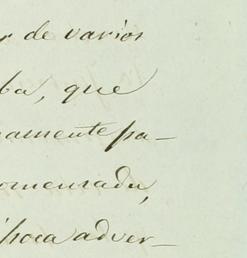 r de varios
ba, que
amente pa-
omensada,
poca adver-